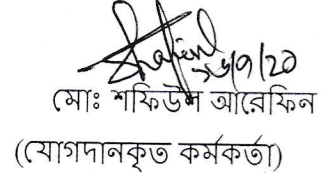 ২৬/৭/২০
মোঃ শফিউল আরেফিন
(যোগদানকৃত কর্মকর্তা)